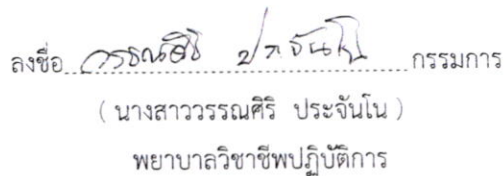 ลงชื่อ วรรณศิริ ประจันโน กรรมการ
( นางสาววรรณศิริ ประจันโน )
พยาบาลวิชาชีพปฏิบัติการ